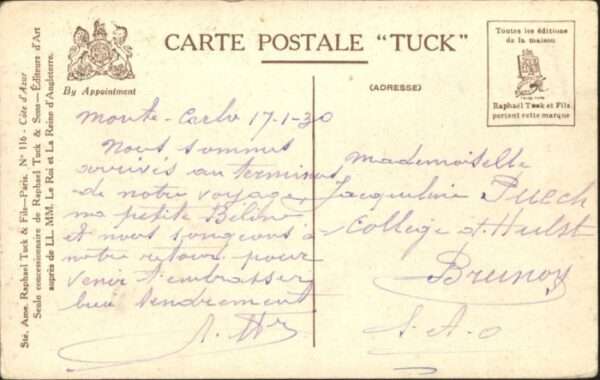 CARTE POSTALE "TUCK"
By Appointment
(ADRESSE)
Toutes les éditions
de la maison
Raphaël Tuck et Fils
portent cette marque
Sté. Ame. Raphaël Tuck & Fils—Paris. Nº 116 - Côte d'Azur
Seule concessionnaire de Raphael Tuck & Sons—Éditeurs d'Art
auprès de LL. MM. Le Roi et La Reine d'Angleterre.
Monte-Carlo 17-1-30
Nous sommes
arrivés au terminus
de notre voyage,
ma petite
et nous songeons à
notre retour pour
venir t'embrasser
bien tendrement
Mademoiselle
Jacqueline Puech
College d'Hulst
Brunoy
S.-A.-O